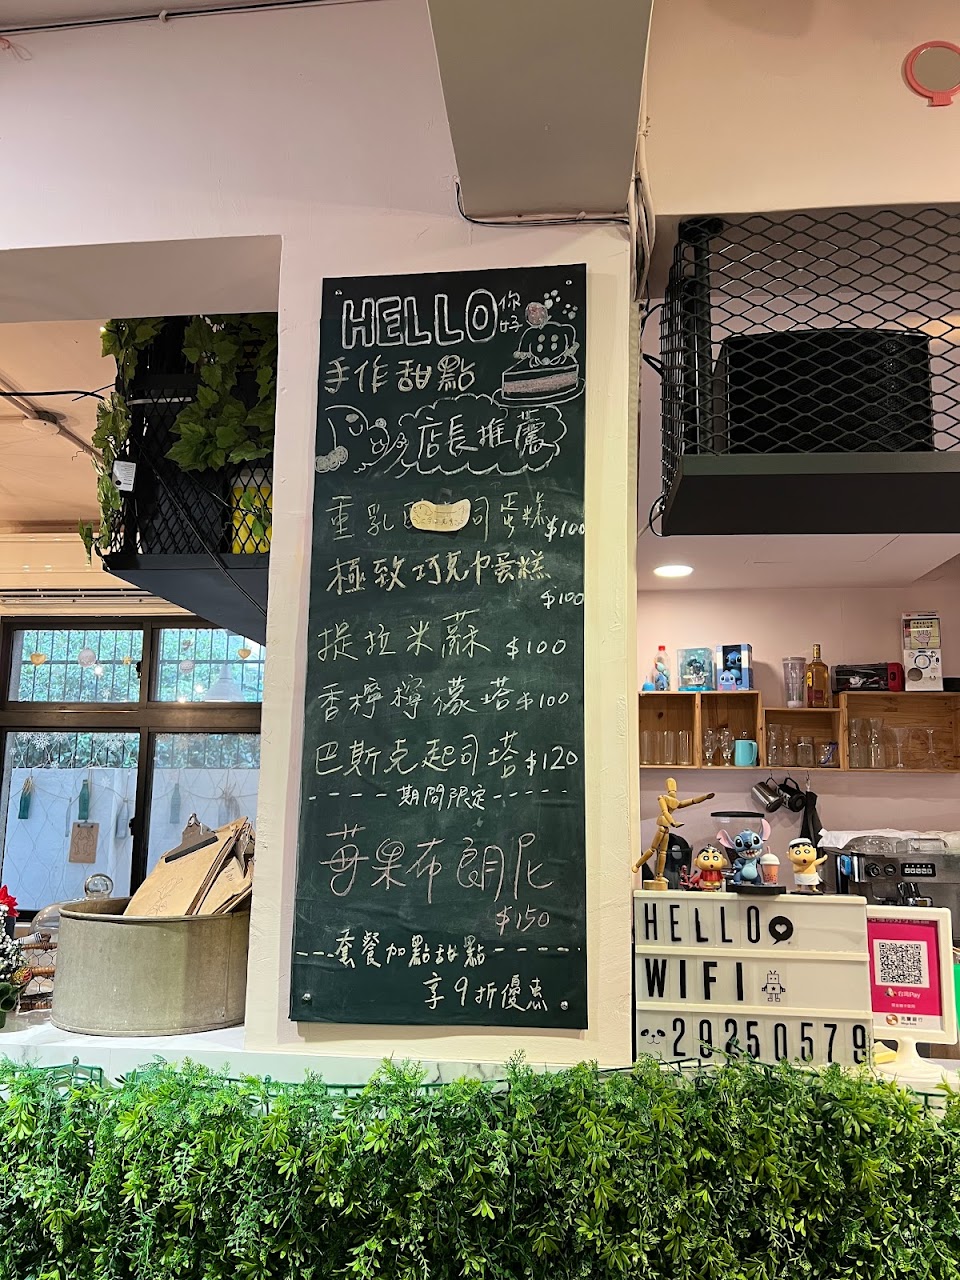 HELLO 你好
手作甜點
店長推薦
重乳 司蛋糕 $100
極致巧克巾蛋糕
$100
提拉米蘇 $100
香檸檸檬塔 $100
巴斯克起司塔 $120
期間限定
莓果布朗尼
$150
套餐加點甜點
享9折優惠
HELLO
WIFI
20250579
台灣Pay
兆豐銀行